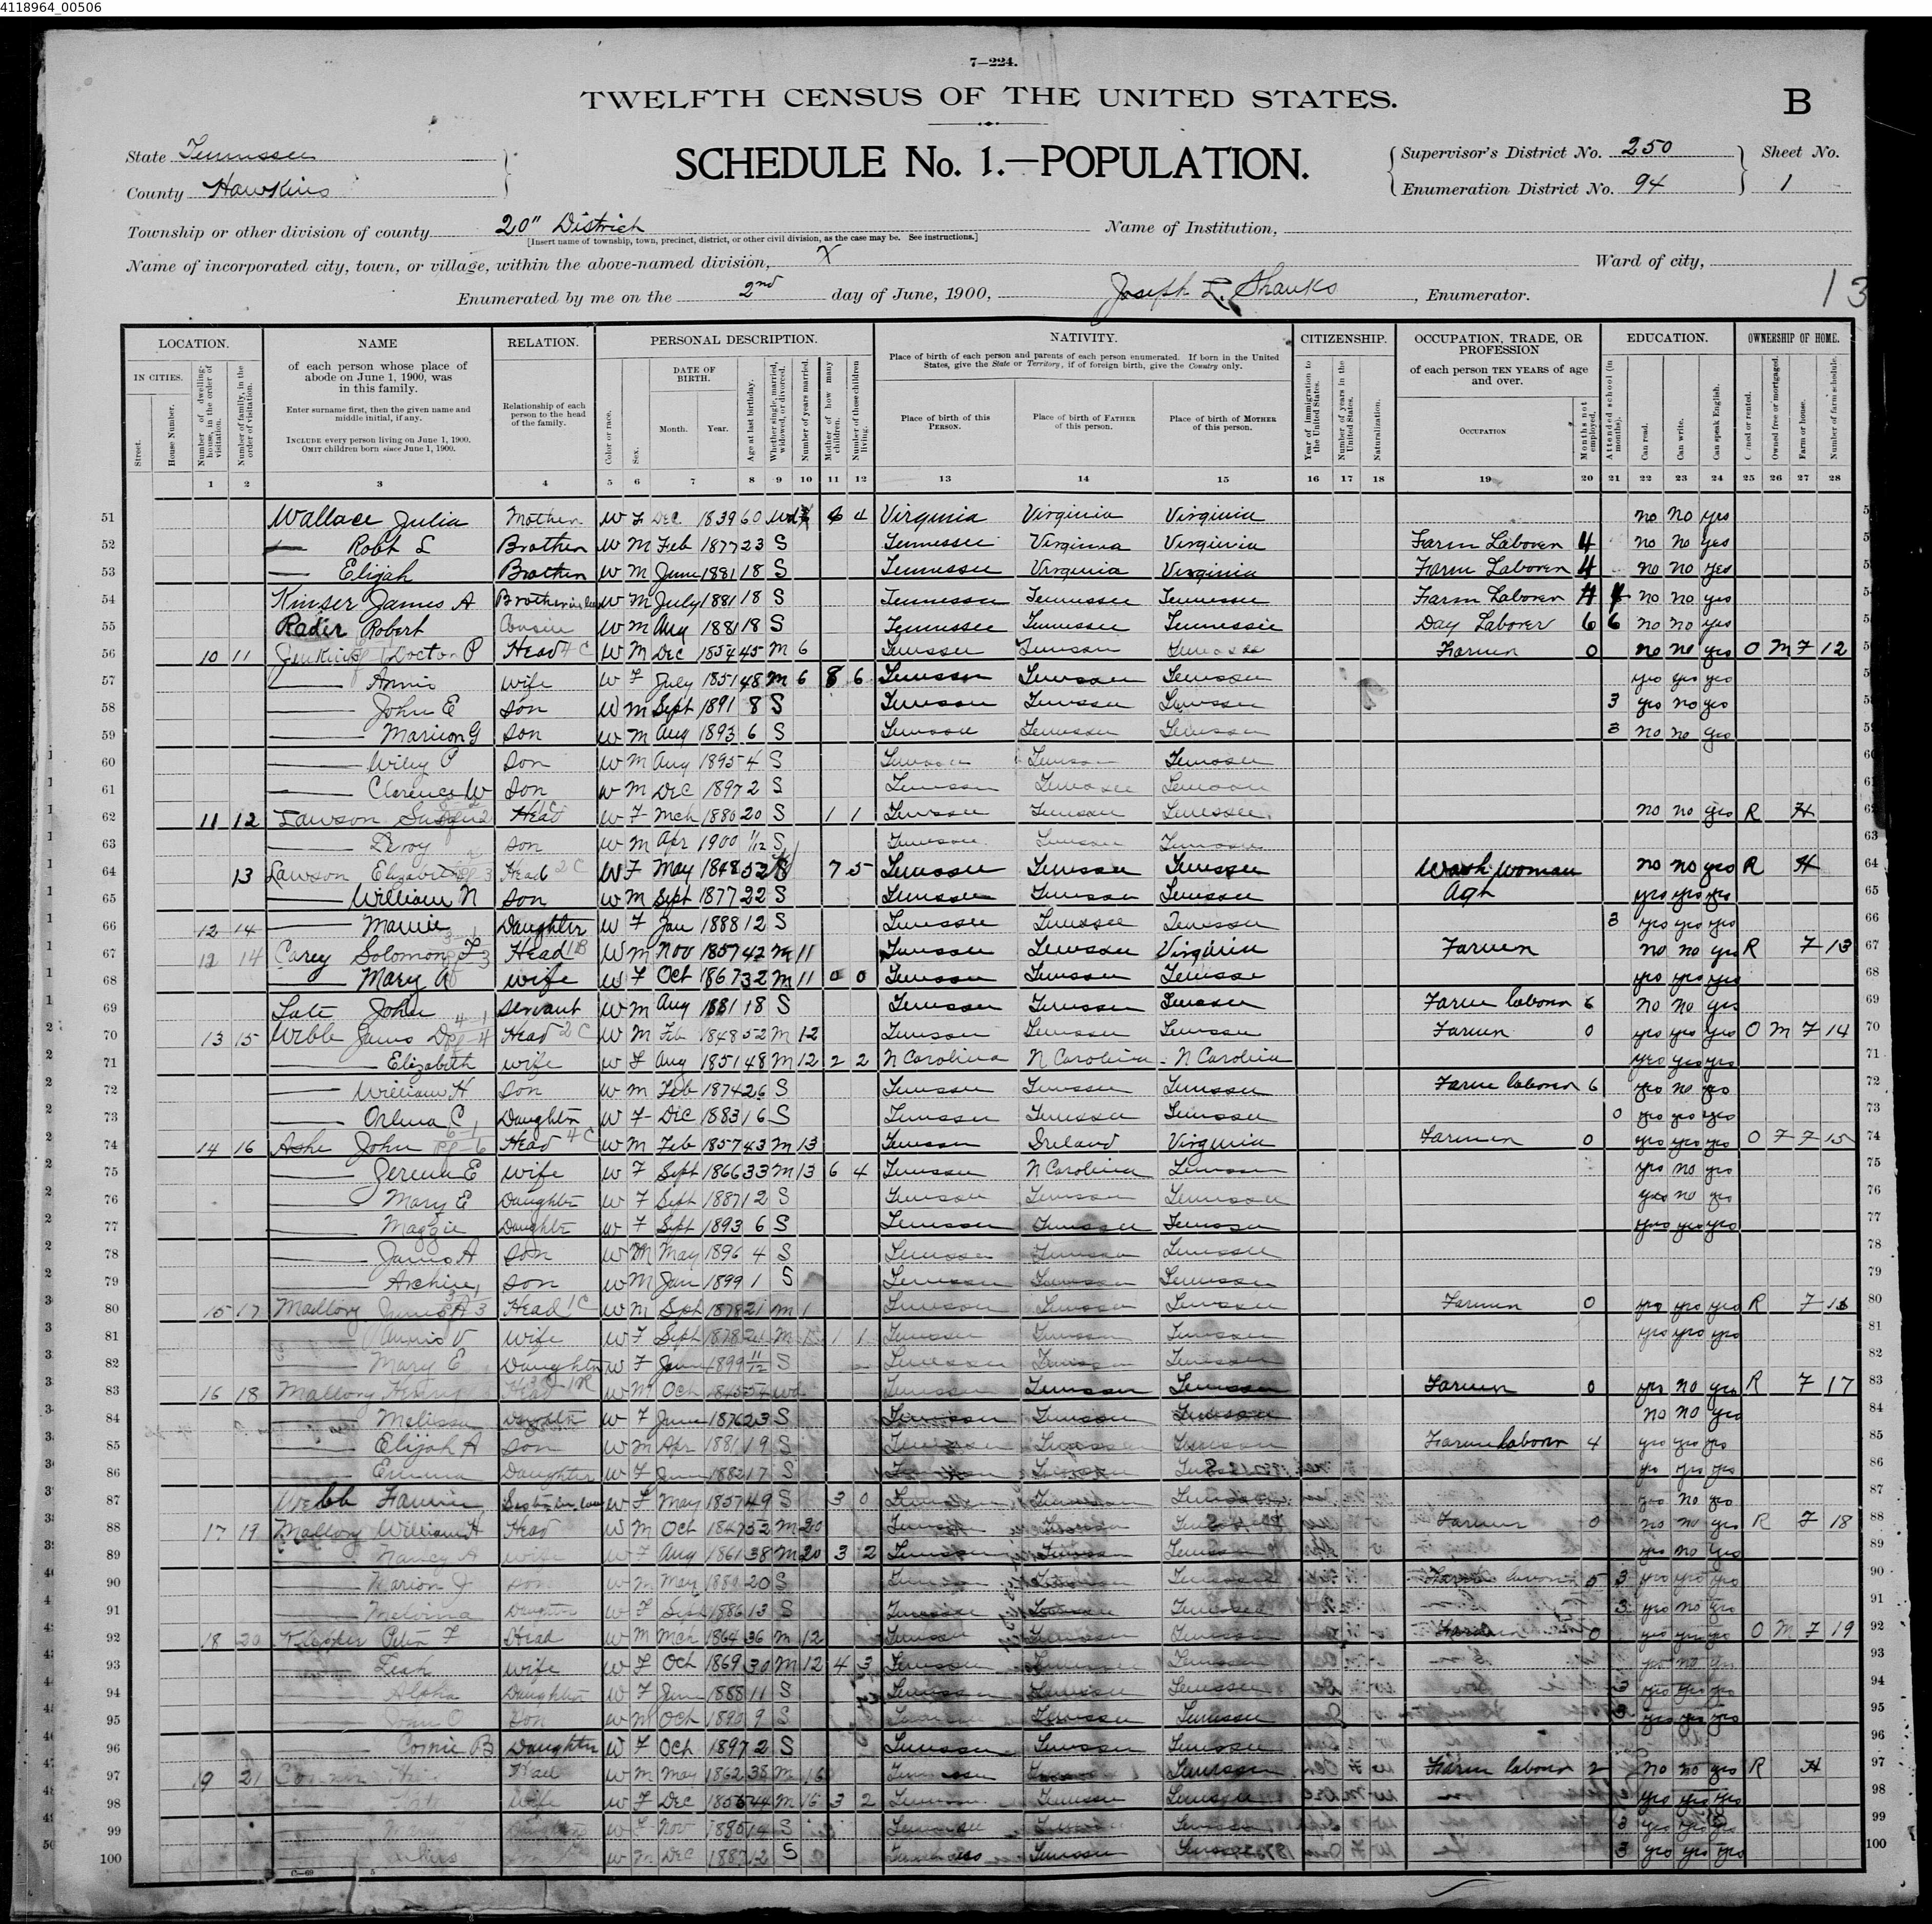 4118964_00506
7—224.
TWELFTH CENSUS OF THE UNITED STATES.
B
State Tennessee
County Hawkins
SCHEDULE No. 1.—POPULATION.
Supervisor's District No. 250
Enumeration District No. 94
Sheet No. 1
Township or other division of county 20" District
[Insert name of township, town, precinct, district, or other civil division, as the case may be. See instructions.]
Name of Institution,
Name of incorporated city, town, or village, within the above-named division, X
Ward of city,
Enumerated by me on the 2nd day of June, 1900, Joseph L. Shanks, Enumerator.
13
LOCATION. NAME RELATION. PERSONAL DESCRIPTION. NATIVITY. CITIZENSHIP. OCCUPATION, TRADE, OR PROFESSION EDUCATION. OWNERSHIP OF HOME.
IN CITIES. Street. House Number. Number of dwelling-house, in the order of visitation. Number of family, in the order of visitation.
of each person whose place of abode on June 1, 1900, was in this family.
Enter surname first, then the given name and middle initial, if any.
INCLUDE every person living on June 1, 1900. OMIT children born since June 1, 1900.
Relationship of each person to the head of the family.
Color or race. Sex. DATE OF BIRTH. Month. Year. Age at last birthday. Whether single, married, widowed, or divorced. Number of years married. Mother of how many children. Number of these children living.
Place of birth of each person and parents of each person enumerated. If born in the United States, give the State or Territory; if of foreign birth, give the Country only.
Place of birth of this PERSON. Place of birth of FATHER of this person. Place of birth of MOTHER of this person.
Year of immigration to the United States. Number of years in the United States. Naturalization.
of each person TEN YEARS of age and over.
OCCUPATION Months not employed. Attended school (in months). Can read. Can write. Can speak English. Owned or rented. Owned free or mortgaged. Farm or house. Number of farm schedule.
1 2 3 4 5 6 7 8 9 10 11 12 13 14 15 16 17 18 19 20 21 22 23 24 25 26 27 28
51 Wallace Julia Mother W F Dec 1839 60 Wd 4 Virginia Virginia Virginia no no yes
52 — Robt L Brother W M Feb 1877 23 S Tennessee Virginia Virginia Farm Laborer 4 no no yes
53 — Elijah Brother W M June 1881 18 S Tennessee Virginia Virginia Farm Laborer 4 no no yes
54 Kinser James A Brother in law W M July 1881 18 S Tennessee Tennessee Tennessee Farm Laborer 4 no no yes
55 Rader Robert Cousin W M Aug 1881 18 S Tennessee Tennessee Tennessee Day Laborer 6 6 no no yes
56 10 11 Jenkins Doctor P Head W M Dec 1854 45 M 6 Tennessee Tennessee Tennessee Farmer 0 no no yes O M F 12
57 — Annie wife W F July 1851 48 M 6 8 6 Tennessee Tennessee Tennessee yes yes yes
58 — John E Son W M Sept 1891 8 S Tennessee Tennessee Tennessee 3 yes no yes
59 — Marion G Son W M Aug 1893 6 S Tennessee Tennessee Tennessee 3 no no yes
60 — Wiley P Son W M Aug 1895 4 S Tennessee Tennessee Tennessee
61 — Clarence W Son W M Dec 1897 2 S Tennessee Tennessee Tennessee
62 11 12 Lawson Head W F Mch 1880 20 S 1 1 Tennessee Tennessee Tennessee no no yes R H
63 — Leroy Son W M Apr 1900 S Tennessee Tennessee Tennessee
64 13 Lawson Elizabeth Head W F May 1848 52 7 5 Tennessee Tennessee Tennessee Wash woman no no yes R H
65 — William N Son W M Sept 1877 22 S Tennessee Tennessee Tennessee Agt yes yes yes
66 12 14 — Daughter W F Jan 1888 12 S Tennessee Tennessee Tennessee 3 yes yes yes
67 12 14 Carey Solomon F Head W M Nov 1857 42 M 11 Tennessee Tennessee Virginia Farmer no no yes R F 13
68 — Mary A wife W F Oct 1867 32 M 11 0 0 Tennessee Tennessee Tennessee yes yes yes
69 John Servant W M Aug 1881 18 S Tennessee Tennessee Tennessee Farm laborer 6 no no yes
70 13 15 James D Head W M Feb 1848 52 M 12 Tennessee Tennessee Tennessee Farmer 0 yes yes yes O M F 14
71 — Elizabeth wife W F Aug 1851 48 M 12 2 2 N Carolina N Carolina N Carolina yes yes yes
72 — William H Son W M Feb 1874 26 S Tennessee Tennessee Tennessee Farm laborer 6 yes no yes
73 — C Daughter W F Dec 1883 16 S Tennessee Tennessee Tennessee 0 yes yes yes
74 14 16 Ashe John Head W M Feb 1857 43 M 13 Tennessee Ireland Virginia Farmer 0 yes yes yes O F F 15
75 — E wife W F Sept 1866 33 M 13 6 4 Tennessee N Carolina Tennessee yes no yes
76 — Mary E Daughter W F Sept 1887 12 S Tennessee Tennessee Tennessee yes no yes
77 — Maggie Daughter W F Sept 1893 6 S Tennessee Tennessee Tennessee yes yes yes
78 — James A Son W M May 1896 4 S Tennessee Tennessee Tennessee
79 — Archie Son W M Jan 1899 1 S Tennessee Tennessee Tennessee
80 15 17 Mallory James A Head W M Sept 1878 21 M 1 Tennessee Tennessee Tennessee Farmer 0 yes yes yes R F 16
81 — Annie V wife W F Sept 1878 21 M 1 1 1 Tennessee Tennessee Tennessee yes yes yes
82 — Mary E Daughter W F June 1899 11/12 S Tennessee Tennessee Tennessee
83 16 18 Mallory Henry Head W M Oct 1845 54 Wd Tennessee Tennessee Tennessee Farmer 0 yes no yes R F 17
84 — Melissa Daughter W F June 1876 23 S Tennessee Tennessee Tennessee no no yes
85 — Elijah A Son W M Apr 1881 19 S Tennessee Tennessee Tennessee Farm laborer 4 yes yes yes
86 — Emma Daughter W F June 1882 17 S Tennessee Tennessee Tennessee yes yes yes
87 Webb Fannie Sister in law W F May 1857 49 S 3 0 Tennessee Tennessee Tennessee yes no yes
88 17 19 Mallory William H Head W M Oct 1847 52 M 20 Tennessee Tennessee Tennessee Farmer 0 no no yes R F 18
89 — Nancy A wife W F Aug 1861 38 M 20 3 2 Tennessee Tennessee Tennessee yes no yes
90 — Marion J Son W M May 1880 20 S Tennessee Tennessee Tennessee Farm laborer 5 3 yes yes yes
91 — Melvina Daughter W F Sept 1886 13 S Tennessee Tennessee Tennessee 3 yes no yes
92 18 20 Klepper Peter F Head W M Mch 1864 36 M 12 Tennessee Tennessee Tennessee Farmer 0 yes yes yes O M F 19
93 — Leah wife W F Oct 1869 30 M 12 4 3 Tennessee Tennessee Tennessee yes no yes
94 — Alpha Daughter W F June 1888 11 S Tennessee Tennessee Tennessee 3 yes yes yes
95 — John O Son W M Oct 1890 9 S Tennessee Tennessee Tennessee 3 yes yes yes
96 — Cornie B Daughter W F Oct 1897 2 S Tennessee Tennessee Tennessee
97 19 21 Head W M May 1862 38 M 16 Tennessee Tennessee Tennessee Farm laborer 2 no no yes R H
98 wife W F Dec 44 M 16 3 2 Tennessee Tennessee Tennessee yes yes yes
99 — Mary Daughter W F Nov 1885 14 S Tennessee Tennessee Tennessee 3 yes yes yes
100 W M Dec 1887 12 S Tennessee Tennessee Tennessee 3 yes yes yes
C—69 5